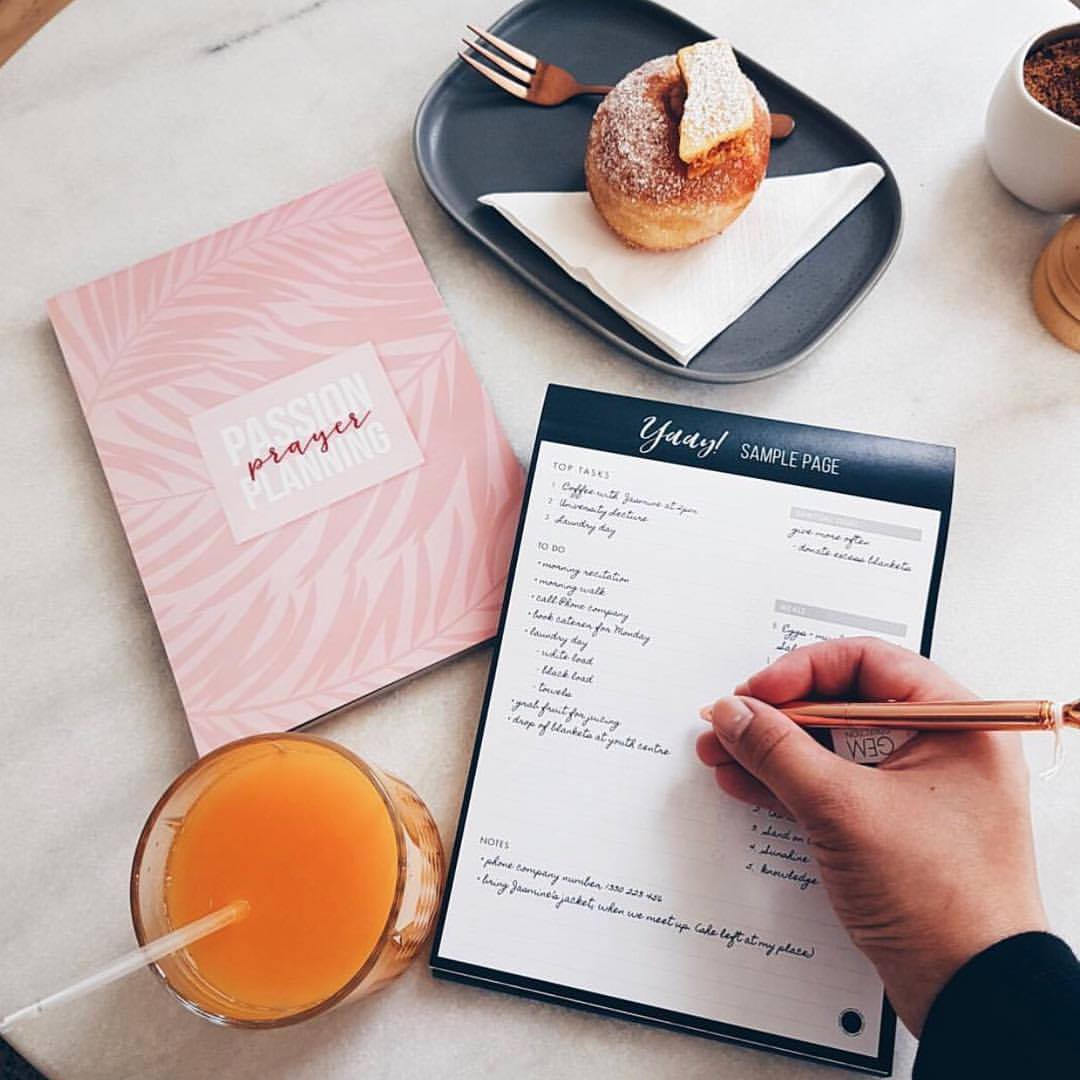 PASSION
prayer
PLANNING
Yaay! SAMPLE PAGE
TOP TASKS
1. Coffee with Jasmine at 2pm
2. University lecture
3. Laundry day
TO DO
• morning recitation
• morning walk
• call Phone company
• book caterer for Monday
• laundry day
- white load
- black load
- towels
• grab fruit for juicing
• drop of blankets at youth centre
NOTES
• phone company number 1330 223 456
• bring Jasmine's jacket, when we meet up. (she left at my place)
give more often
- donate excess blankets
MEALS
Eggs
GEM
3. Sand on
4. Sunshine
5. knowledge